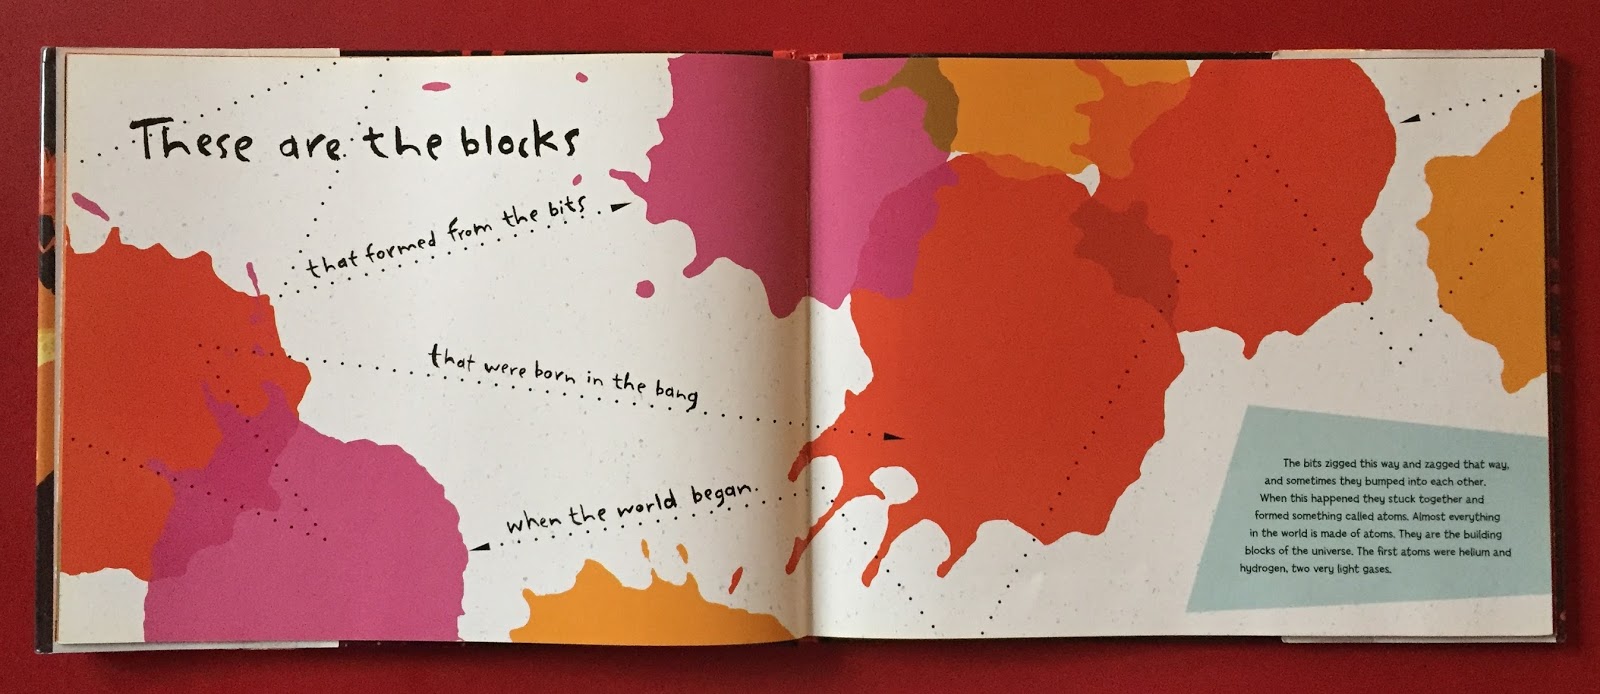 These are the blocks
that formed from the bits
that were born in the bang
when the world began.
The bits zigged this way and zagged that way,
and sometimes they bumped into each other.
When this happened they stuck together and
formed something called atoms. Almost everything
in the world is made of atoms. They are the building
blocks of the universe. The first atoms were helium and
hydrogen, two very light gases.